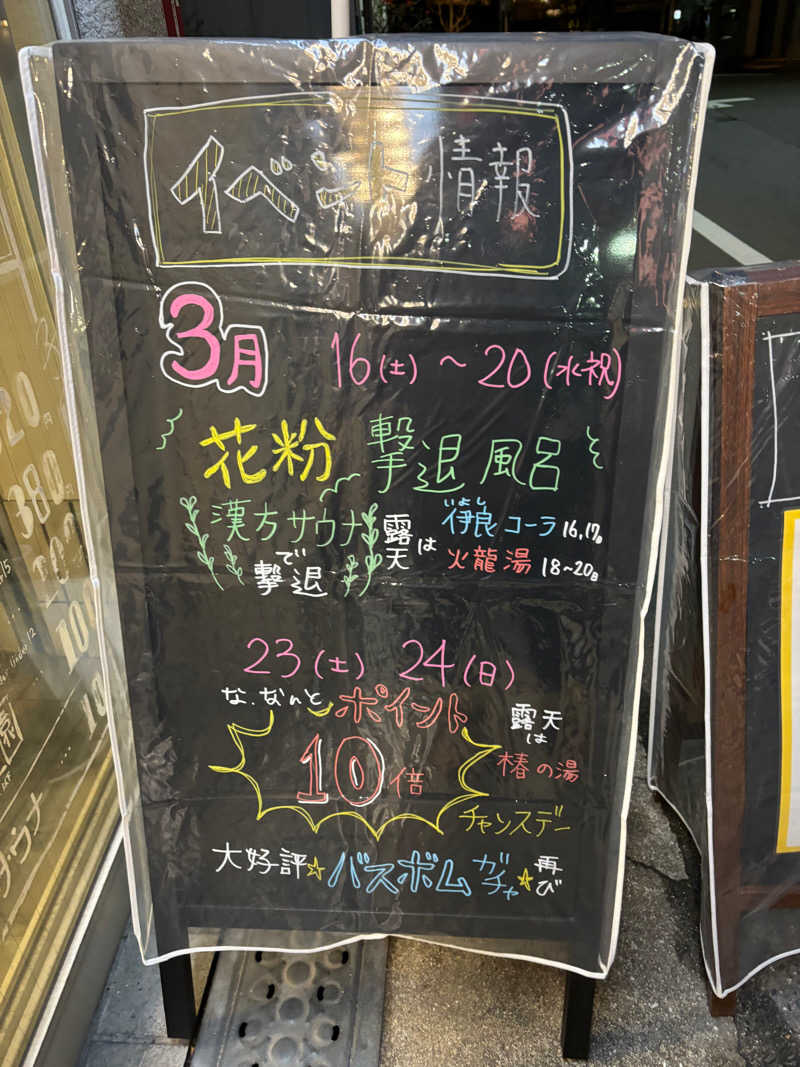 イベント情報
3月 16(土)〜20(水祝)
花粉撃退風呂
漢方サウナで撃退
露天は
いよし
伊良コーラ 16,17日
火龍湯 18〜20日
23(土) 24(日)
な、なんと ポイント
10倍
チャンスデー
露天は
椿の湯
大好評☆バスボムガチャ☆再び
380